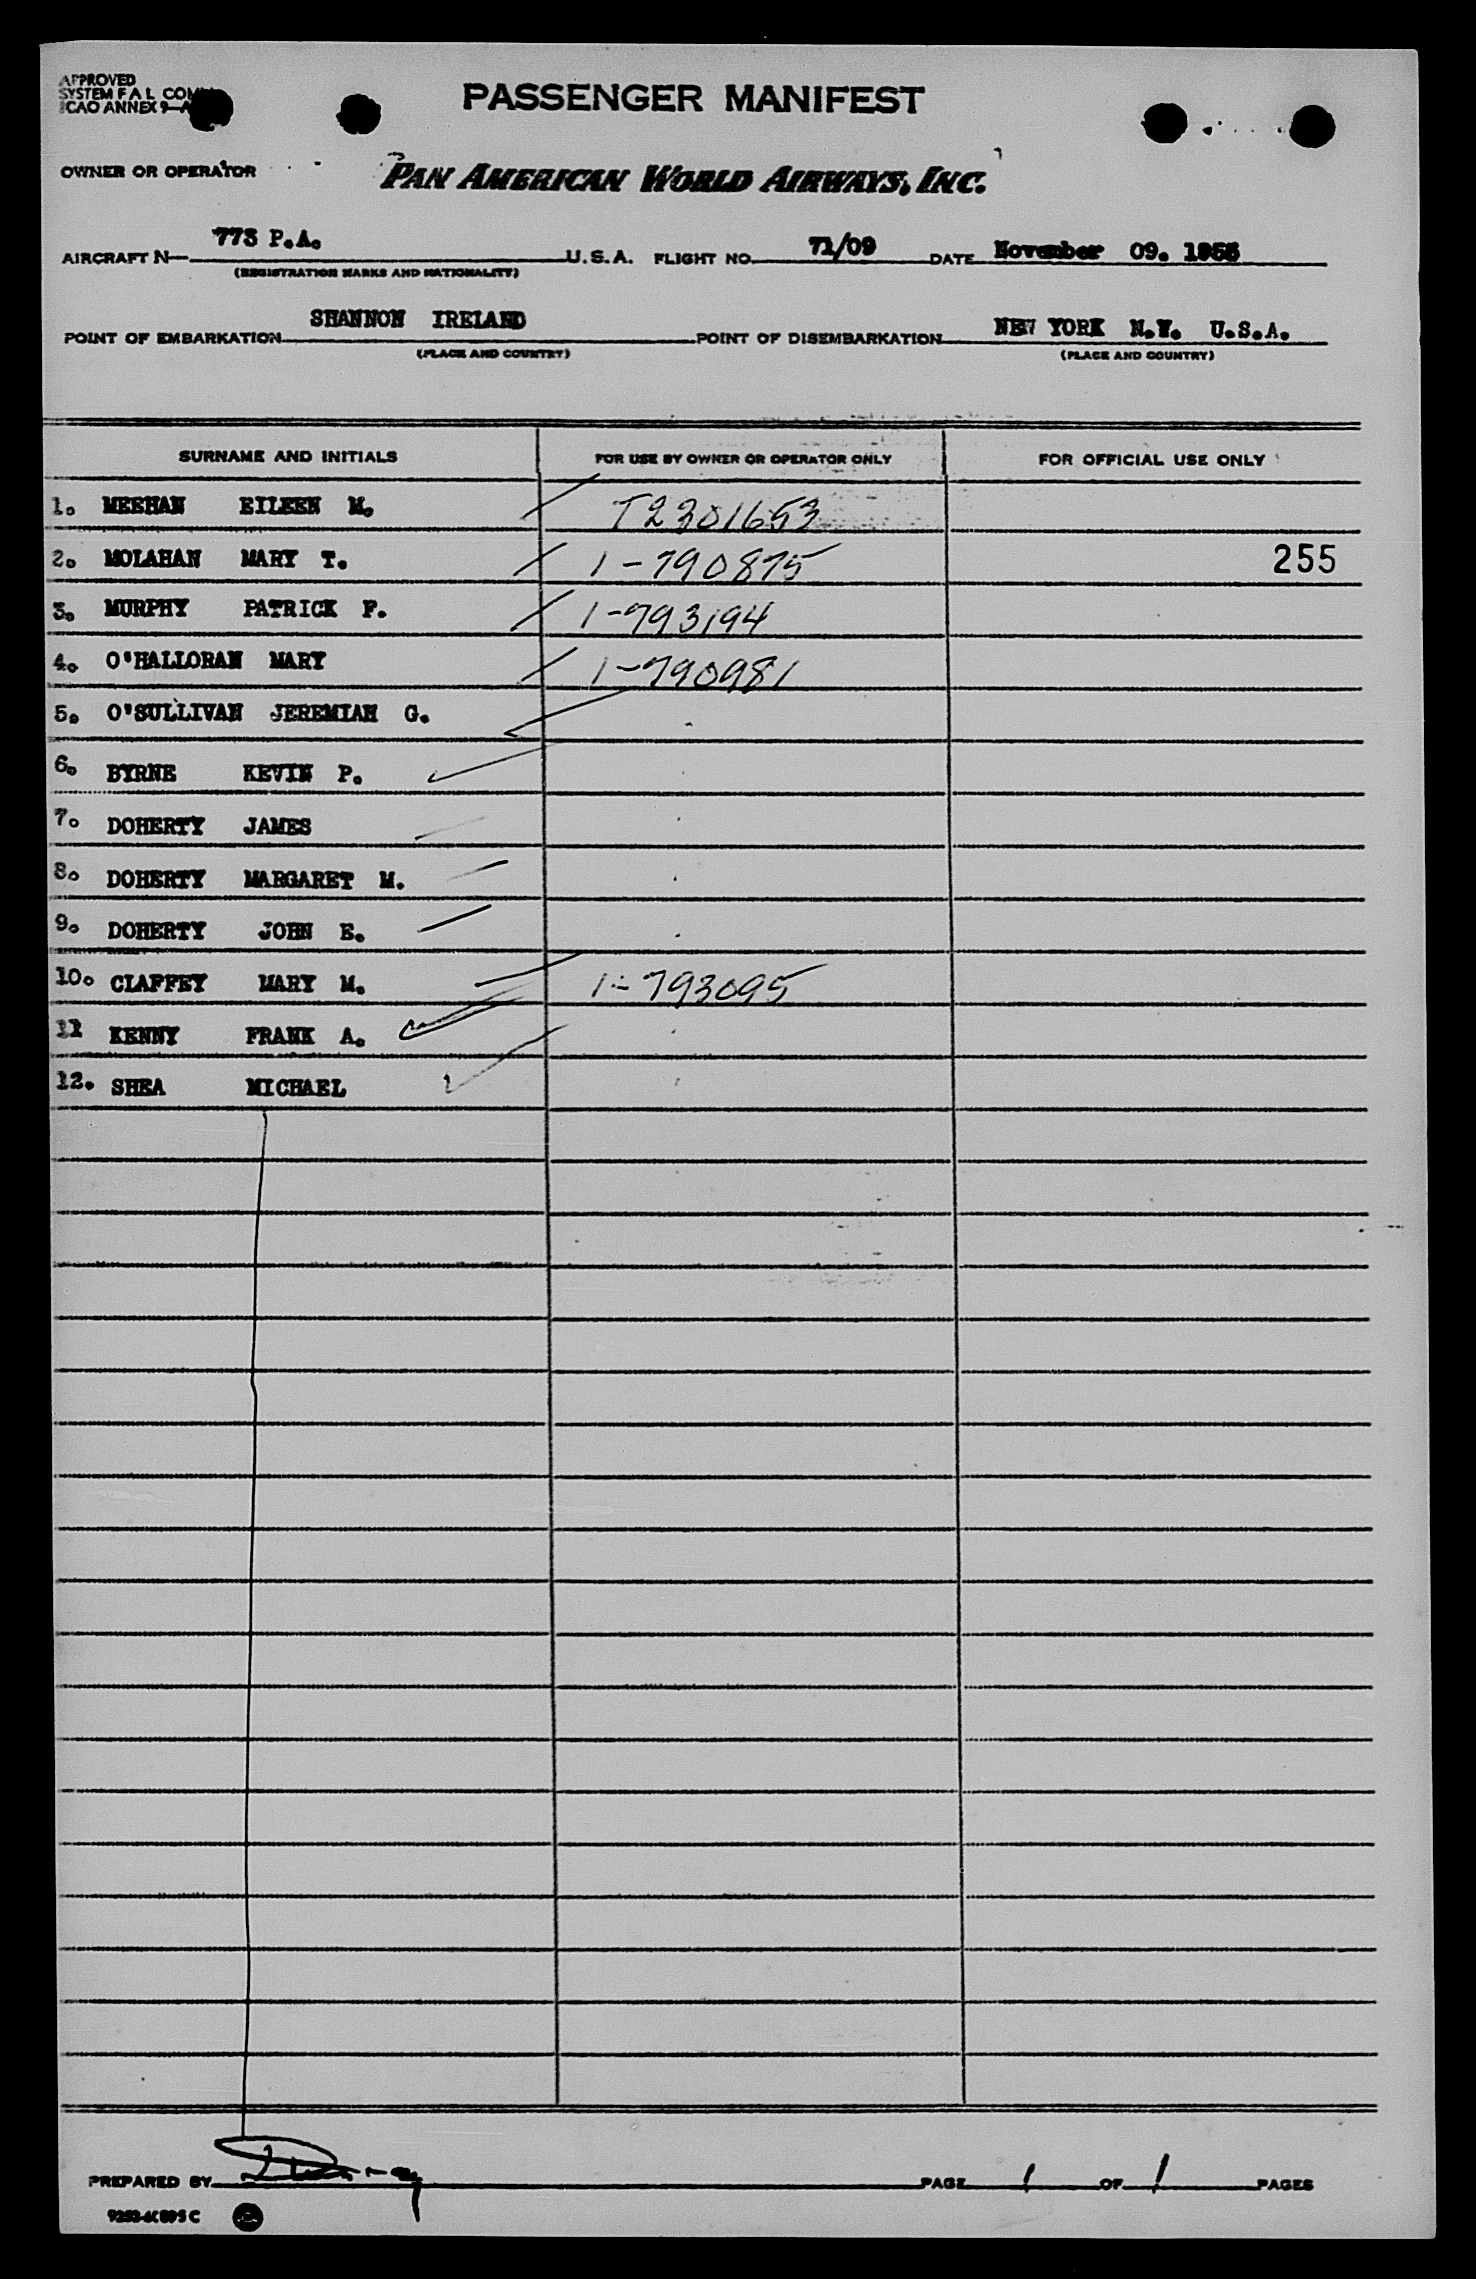 APPROVED
SYSTEM F A L COM
ICAO ANNEX 9-A
PASSENGER MANIFEST
OWNER OR OPERATOR
PAN AMERICAN WORLD AIRWAYS, INC.
AIRCRAFT N- 773 P.A. U.S.A. FLIGHT NO. 71/09 DATE November 09. 1955
(REGISTRATION MARKS AND NATIONALITY)
POINT OF EMBARKATION SHANNON IRELAND POINT OF DISEMBARKATION NEW YORK N.Y. U.S.A.
(PLACE AND COUNTRY) (PLACE AND COUNTRY)
SURNAME AND INITIALS FOR USE BY OWNER OR OPERATOR ONLY FOR OFFICIAL USE ONLY
1. MEEHAN EILEEN M. T2301653
2. MOLAHAN MARY T. 1-790875 255
3. MURPHY PATRICK F. 1-793194
4. O'HALLORAN MARY 1-790981
5. O'SULLIVAN JEREMIAH G.
6. BYRNE KEVIN P.
7. DOHERTY JAMES
8. DOHERTY MARGARET M.
9. DOHERTY JOHN E.
10. CLAFFEY MARY M. 1-793095
11 KENNY FRANK A.
12. SHEA MICHAEL
PREPARED BY PAGE 1 OF 1 PAGES